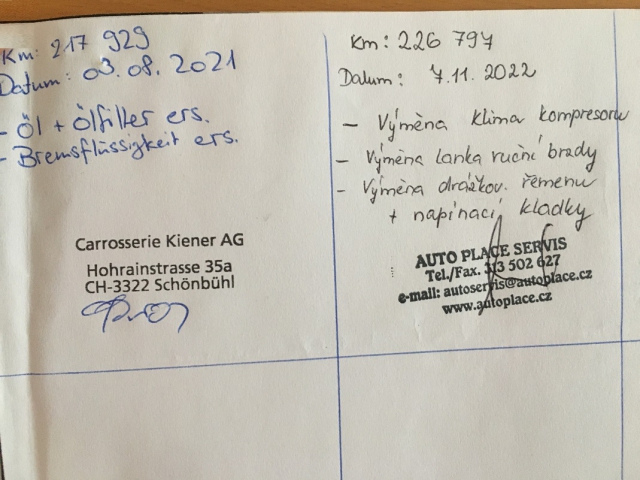 Km: 217 929
Datum: 03.08.2021
- Öl + Ölfilter ers.
- Bremsflüssigkeit ers.
Carrosserie Kiener AG
Hohrainstrasse 35a
CH-3322 Schönbühl
Km: 226 797
Datum: 7.11.2022
- Výměna klima kompresoru
- Výměna lanka ruční brzdy
- Výměna drážkov. řemenu
+ napínací kladky
AUTO PLACE SERVIS
Tel./Fax. 313 502 627
e-mail: autoservis@autoplace.cz
www.autoplace.cz